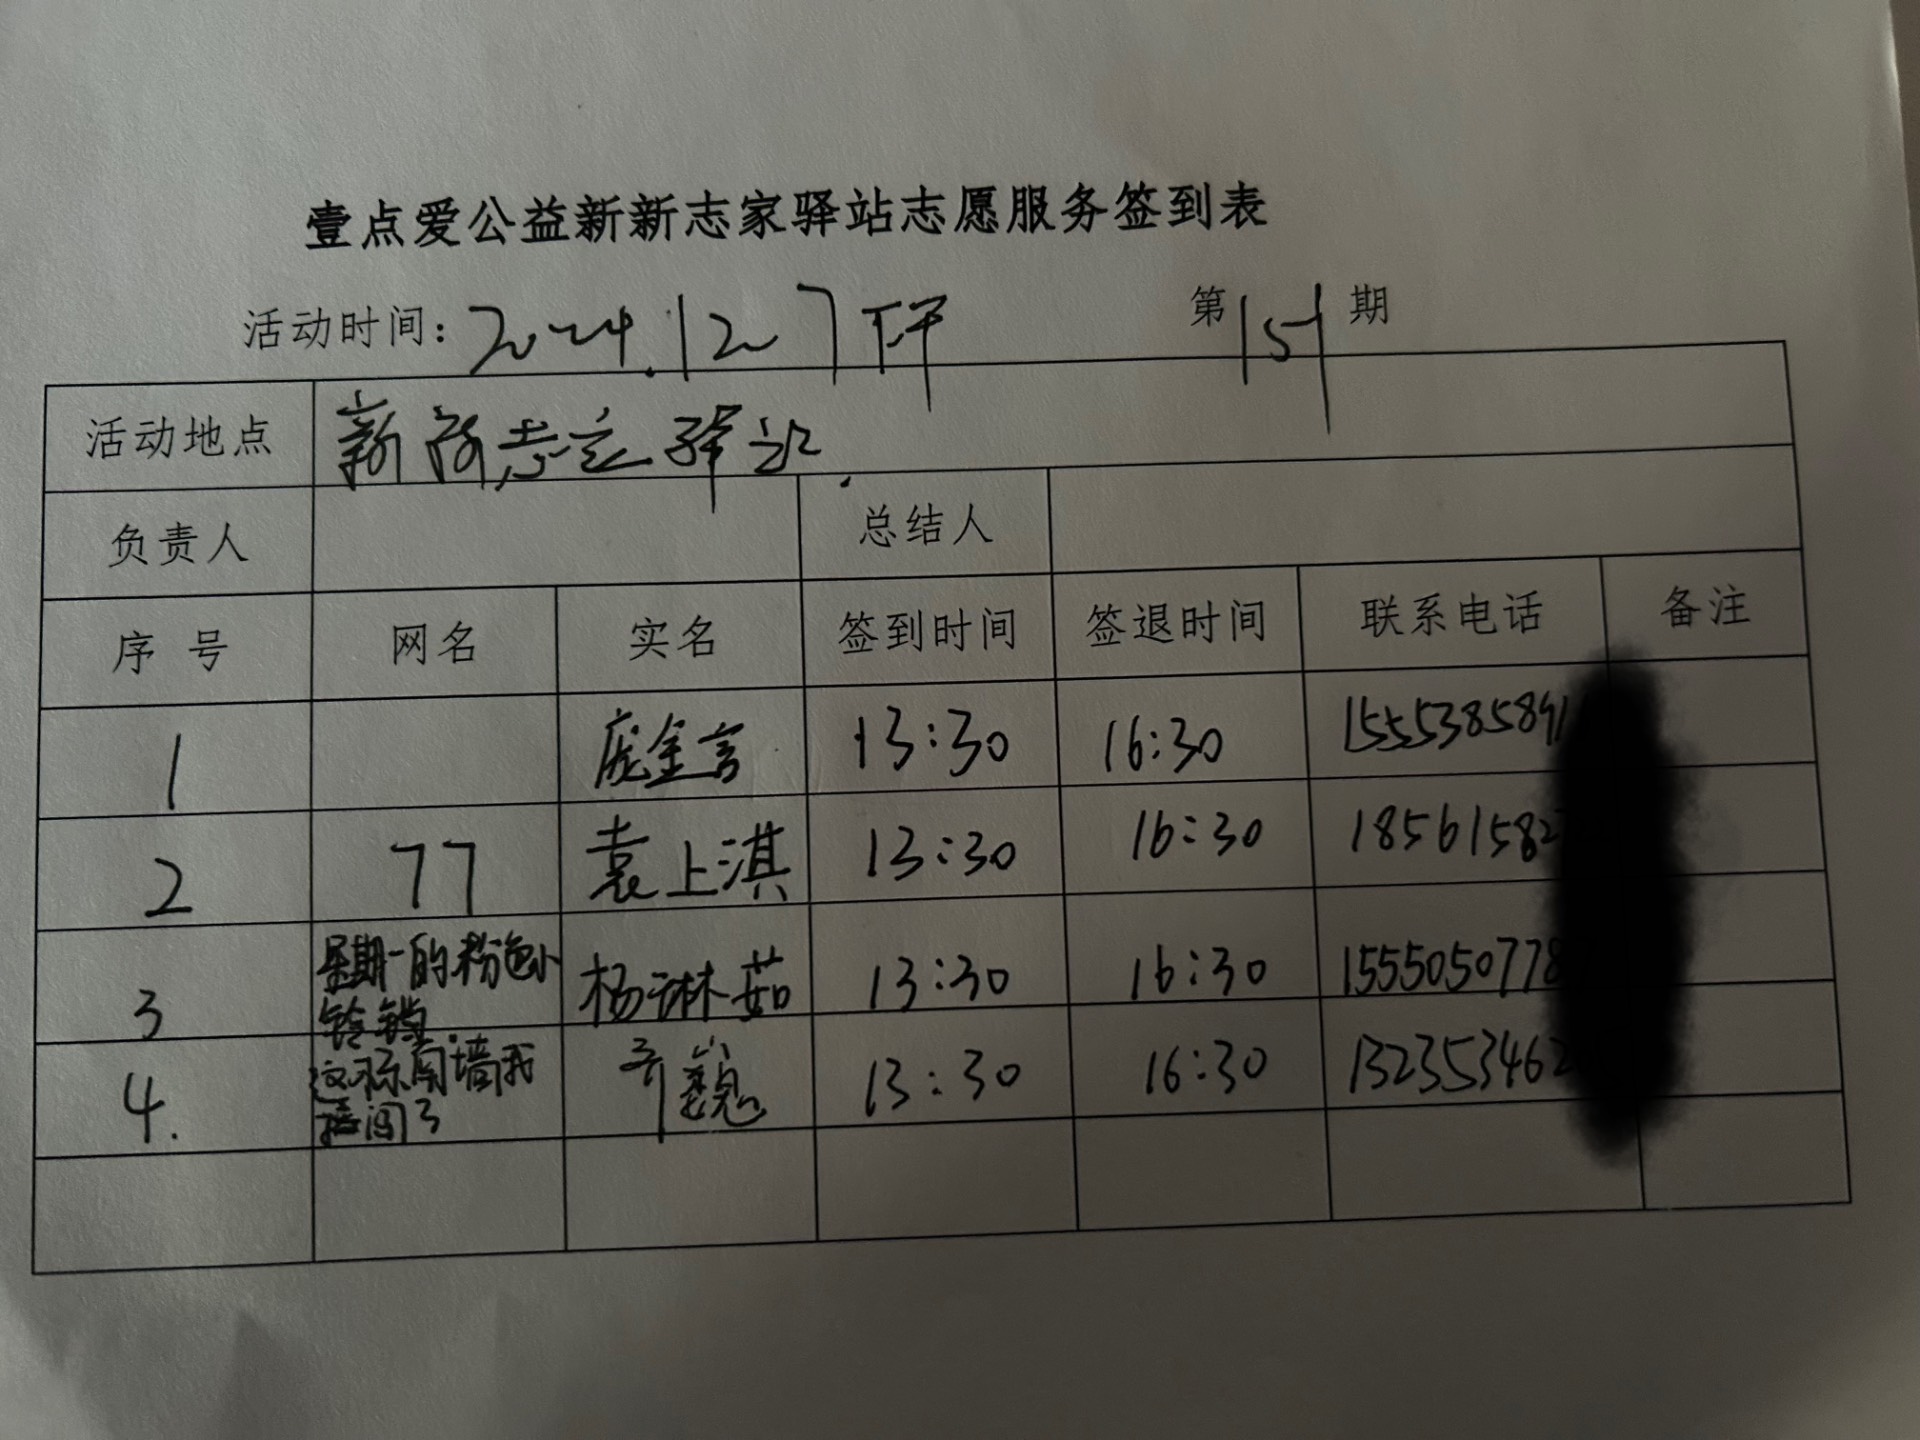 壹点爱公益新新志家驿站志愿服务签到表
活动时间：2024.12 7 下午 第151期
活动地点 新新志愿驿站.
负责人 总结人
序号 网名 实名 签到时间 签退时间 联系电话 备注
1 庞金言 13:30 16:30 1555385891
2 77 袁上淇 13:30 16:30 18561582
3 星期一的粉色小 杨琳茹 13:30 16:30 1555050778
铃铛
4. 南墙我 齐巍 13:30 16:30 132353462
撞闯了